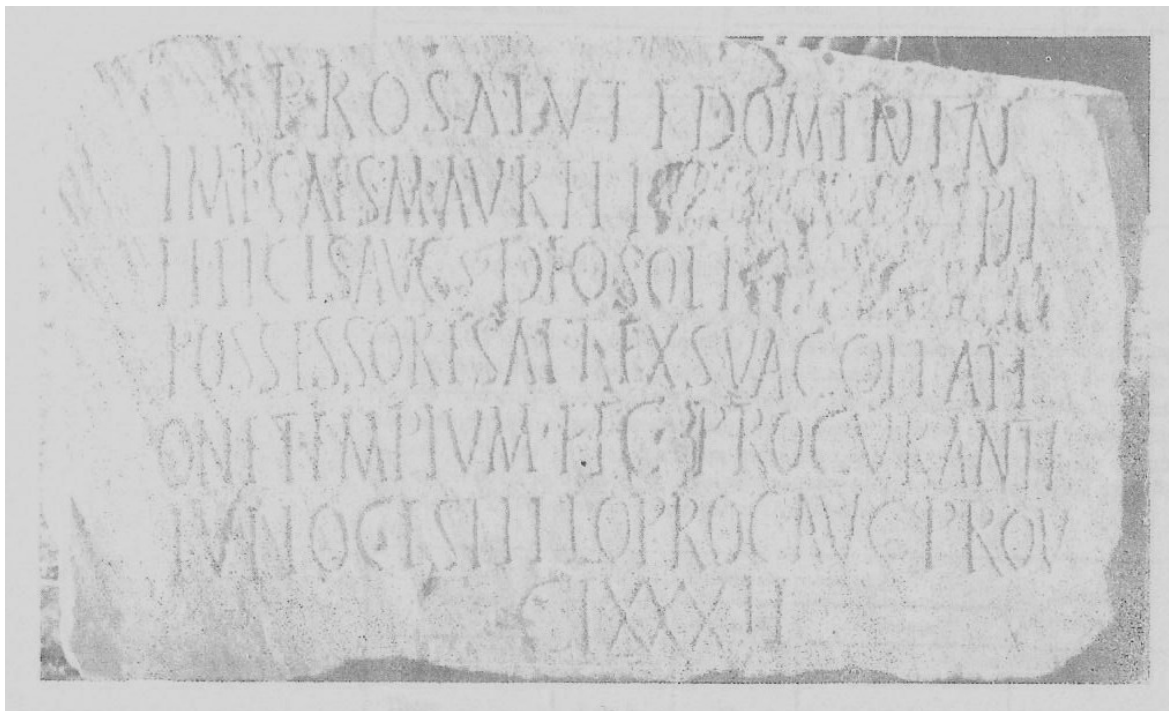 PRO SALVTE DOMINI N
IMP CAES M AVRELI PII
FELICIS AVG S DEO SOLI
POSSESSORES APR EX SVA COLLATI
ONE TEMPLVM FEC PROCVRANTE
PROC AVG PROV
CLXXXII